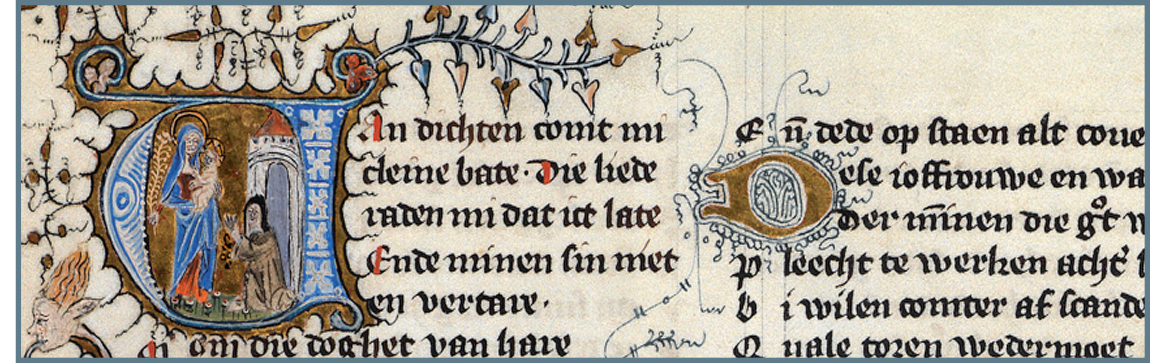 Van dichten comt mi
cleine bate. Die liede
raden mi dat ict late
Ende minen sin niet
en vertare.
om die doghet van hare
En̄ dede op staen alt coue
Dese ioffrouwe en wa
Der m̄inen die gͦt w
Pleecht te werken acht' i
Bi wilen comter af scande
Quale toren wedermoet